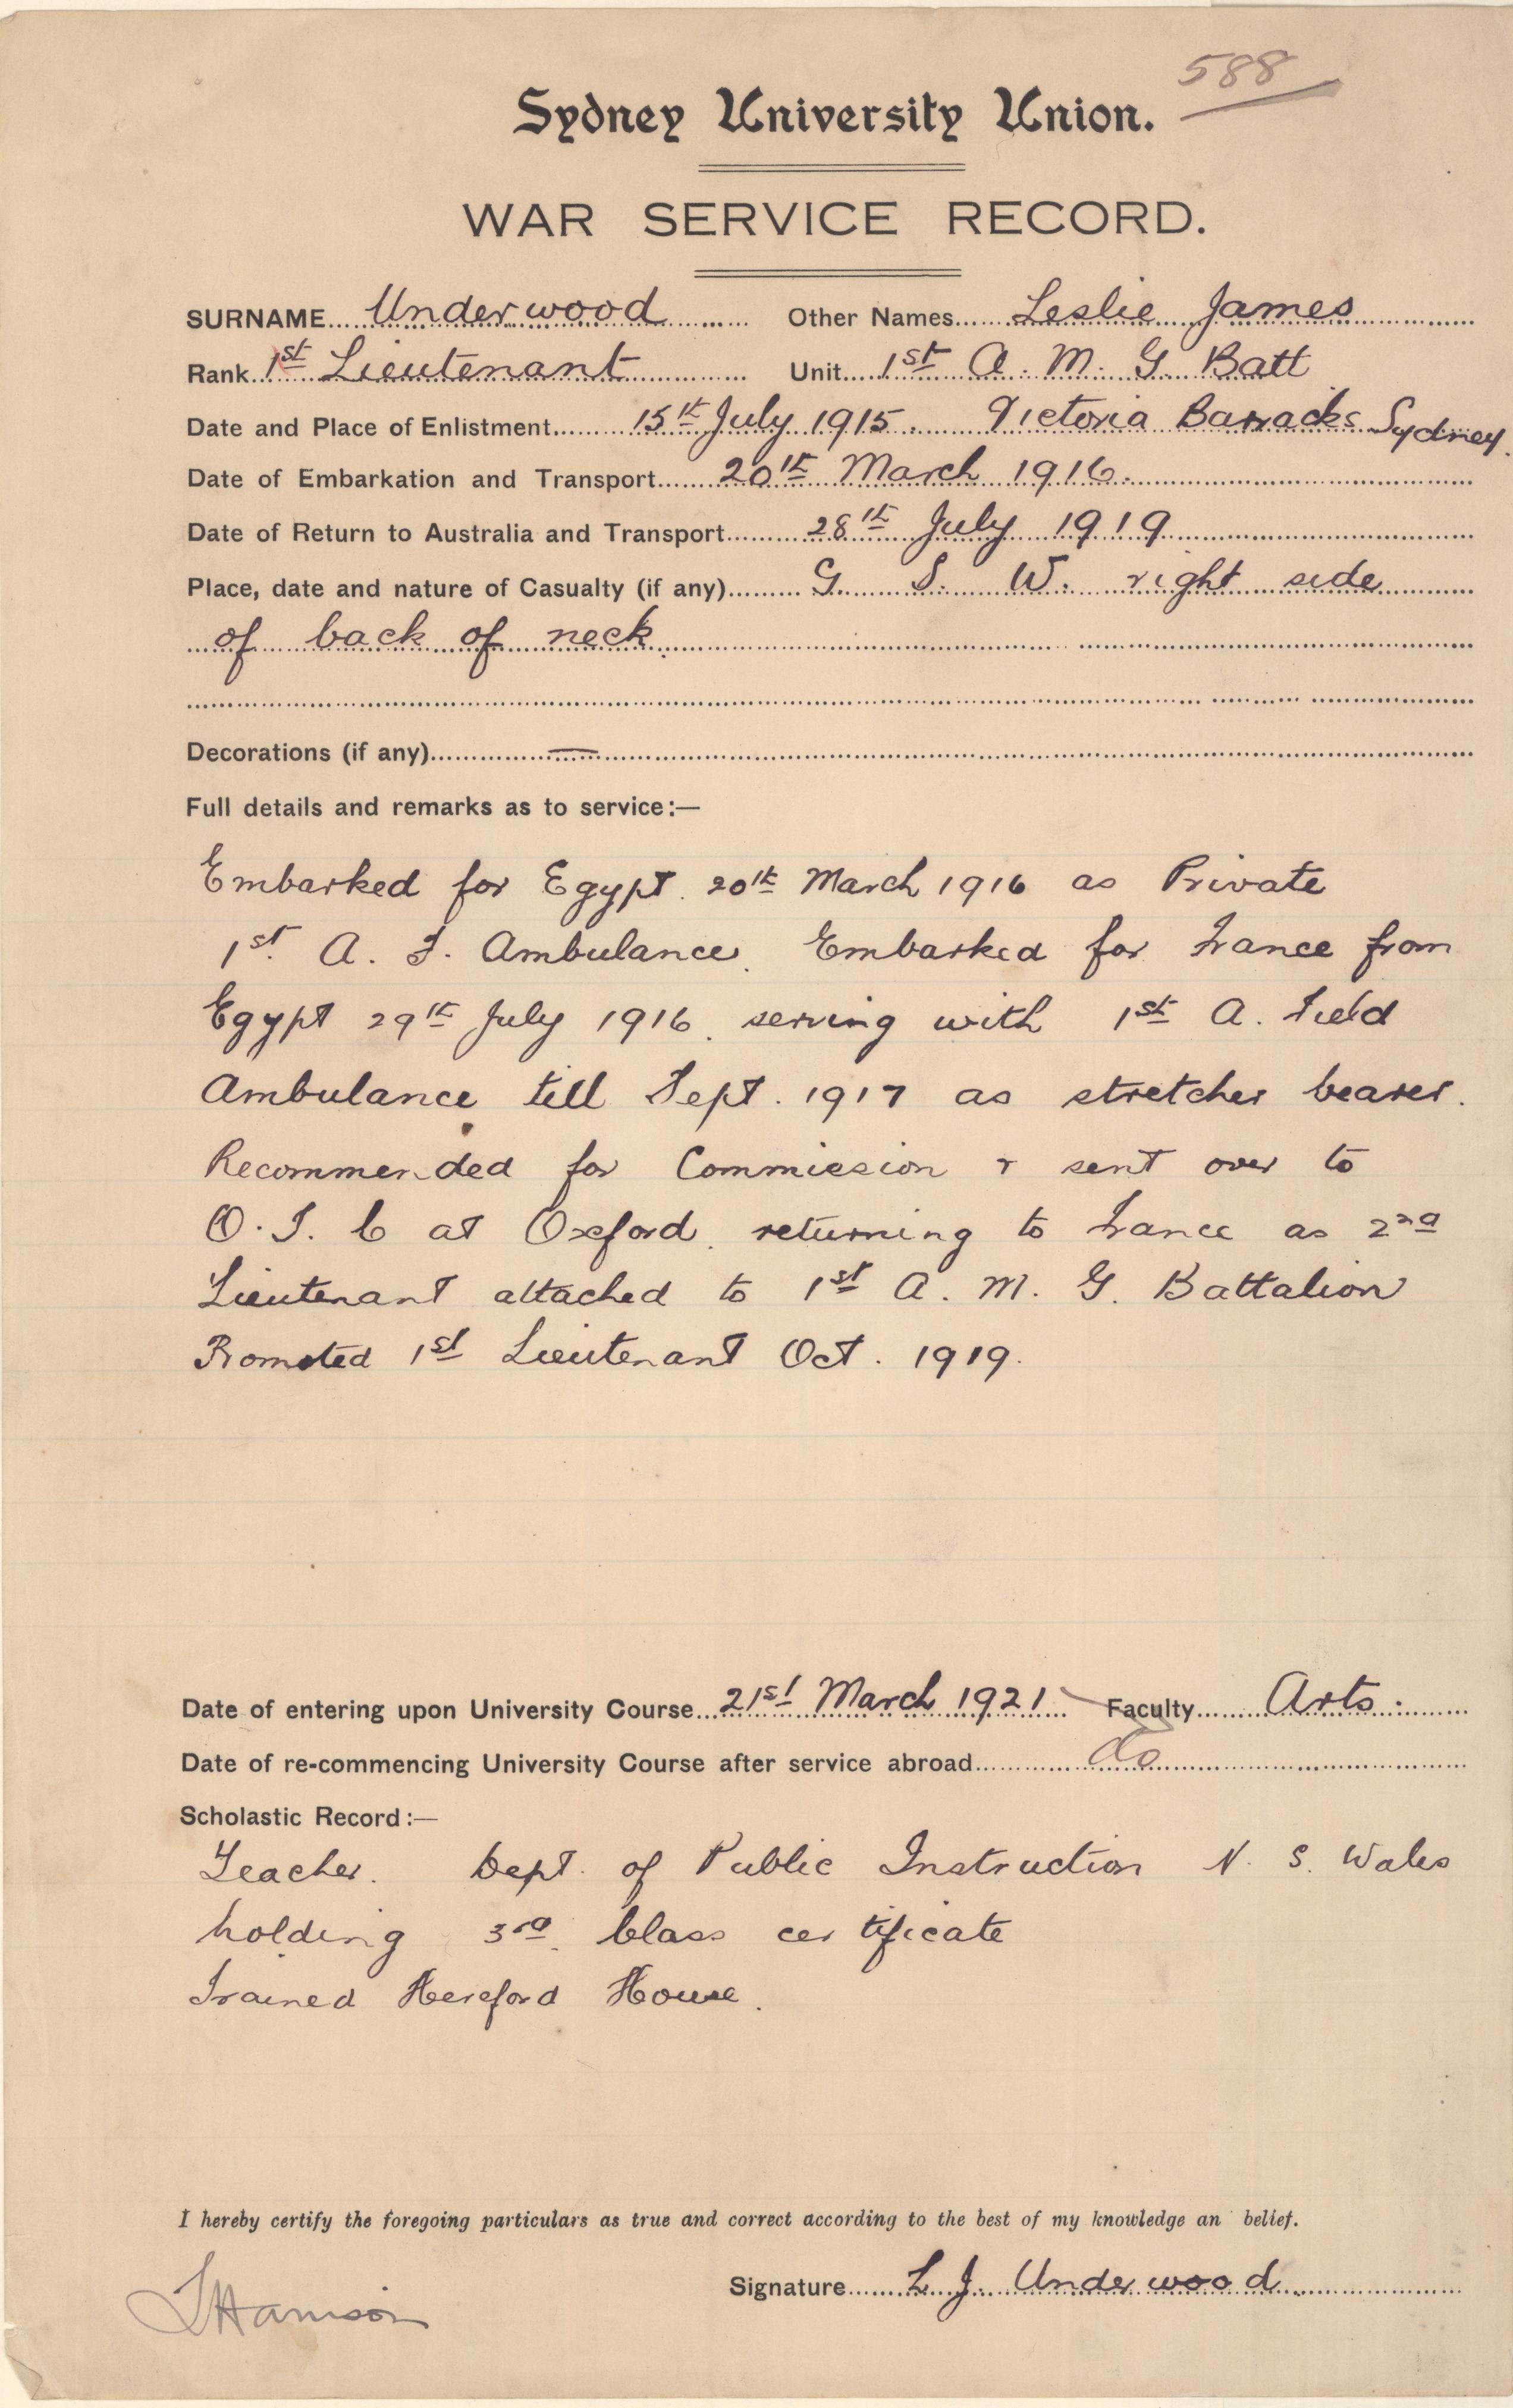 588
Sydney University Union.
WAR SERVICE RECORD.
SURNAME Underwood Other Names Leslie James
Rank 1st Lieutenant Unit 1st A. M. G. Batt
Date and Place of Enlistment 15th July 1915. Victoria Barracks Sydney.
Date of Embarkation and Transport 20th March 1916.
Date of Return to Australia and Transport 28th July 1919
Place, date and nature of Casualty (if any) G. S. W. right side
of back of neck.
Decorations (if any) —
Full details and remarks as to service:—
Embarked for Egypt. 20th March 1916 as Private
1st A. F. Ambulance. Embarked for France from
Egypt 29th July 1916. serving with 1st A. Field
Ambulance till Sept. 1917 as stretcher bearer.
Recommended for Commission & sent over to
O. T. C at Oxford. returning to France as 2nd
Lieutenant attached to 1st A. M. G. Battalion
Promoted 1st Lieutenant Oct. 1919.
Date of entering upon University Course 21st March 1921 Faculty Arts.
Date of re-commencing University Course after service abroad do
Scholastic Record:—
Teacher. Dept. of Public Instruction N. S. Wales
holding 3rd. Class certificate
Trained Hereford House.
I hereby certify the foregoing particulars as true and correct according to the best of my knowledge an belief.
Signature L. J. Underwood
L Harrison